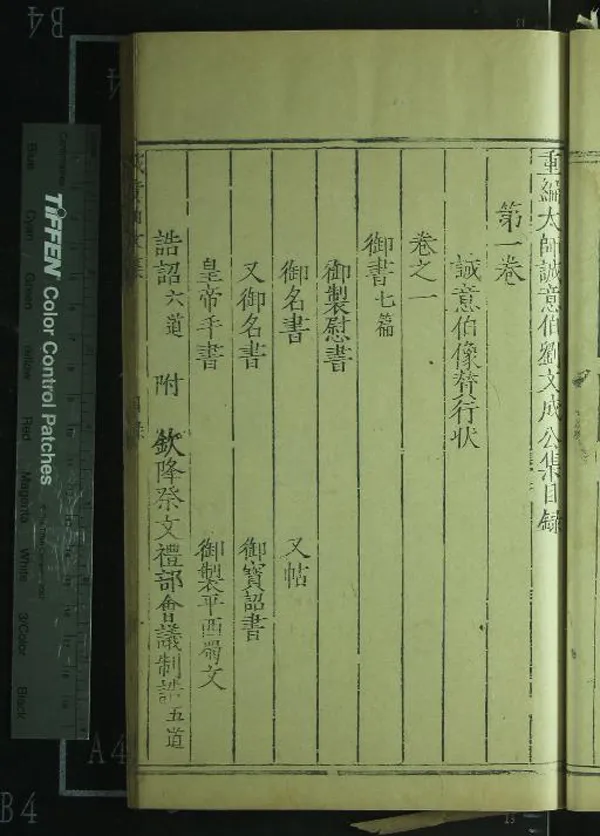 重編太師誠意伯劉文成公集目錄
第一卷
誠意伯像賛行状
卷之一
御書七篇
御製慰書
御名書 又帖
又御名書 御寳詔書
皇帝手書 御製平西蜀文
誥詔六道 附 欽降祭文禮部會議制誥五道
TIFFEN Color Control Patches
Blue
Cyan
Green
Yellow
Red
Magenta
White
3/Color
Black
B4
A4
B4